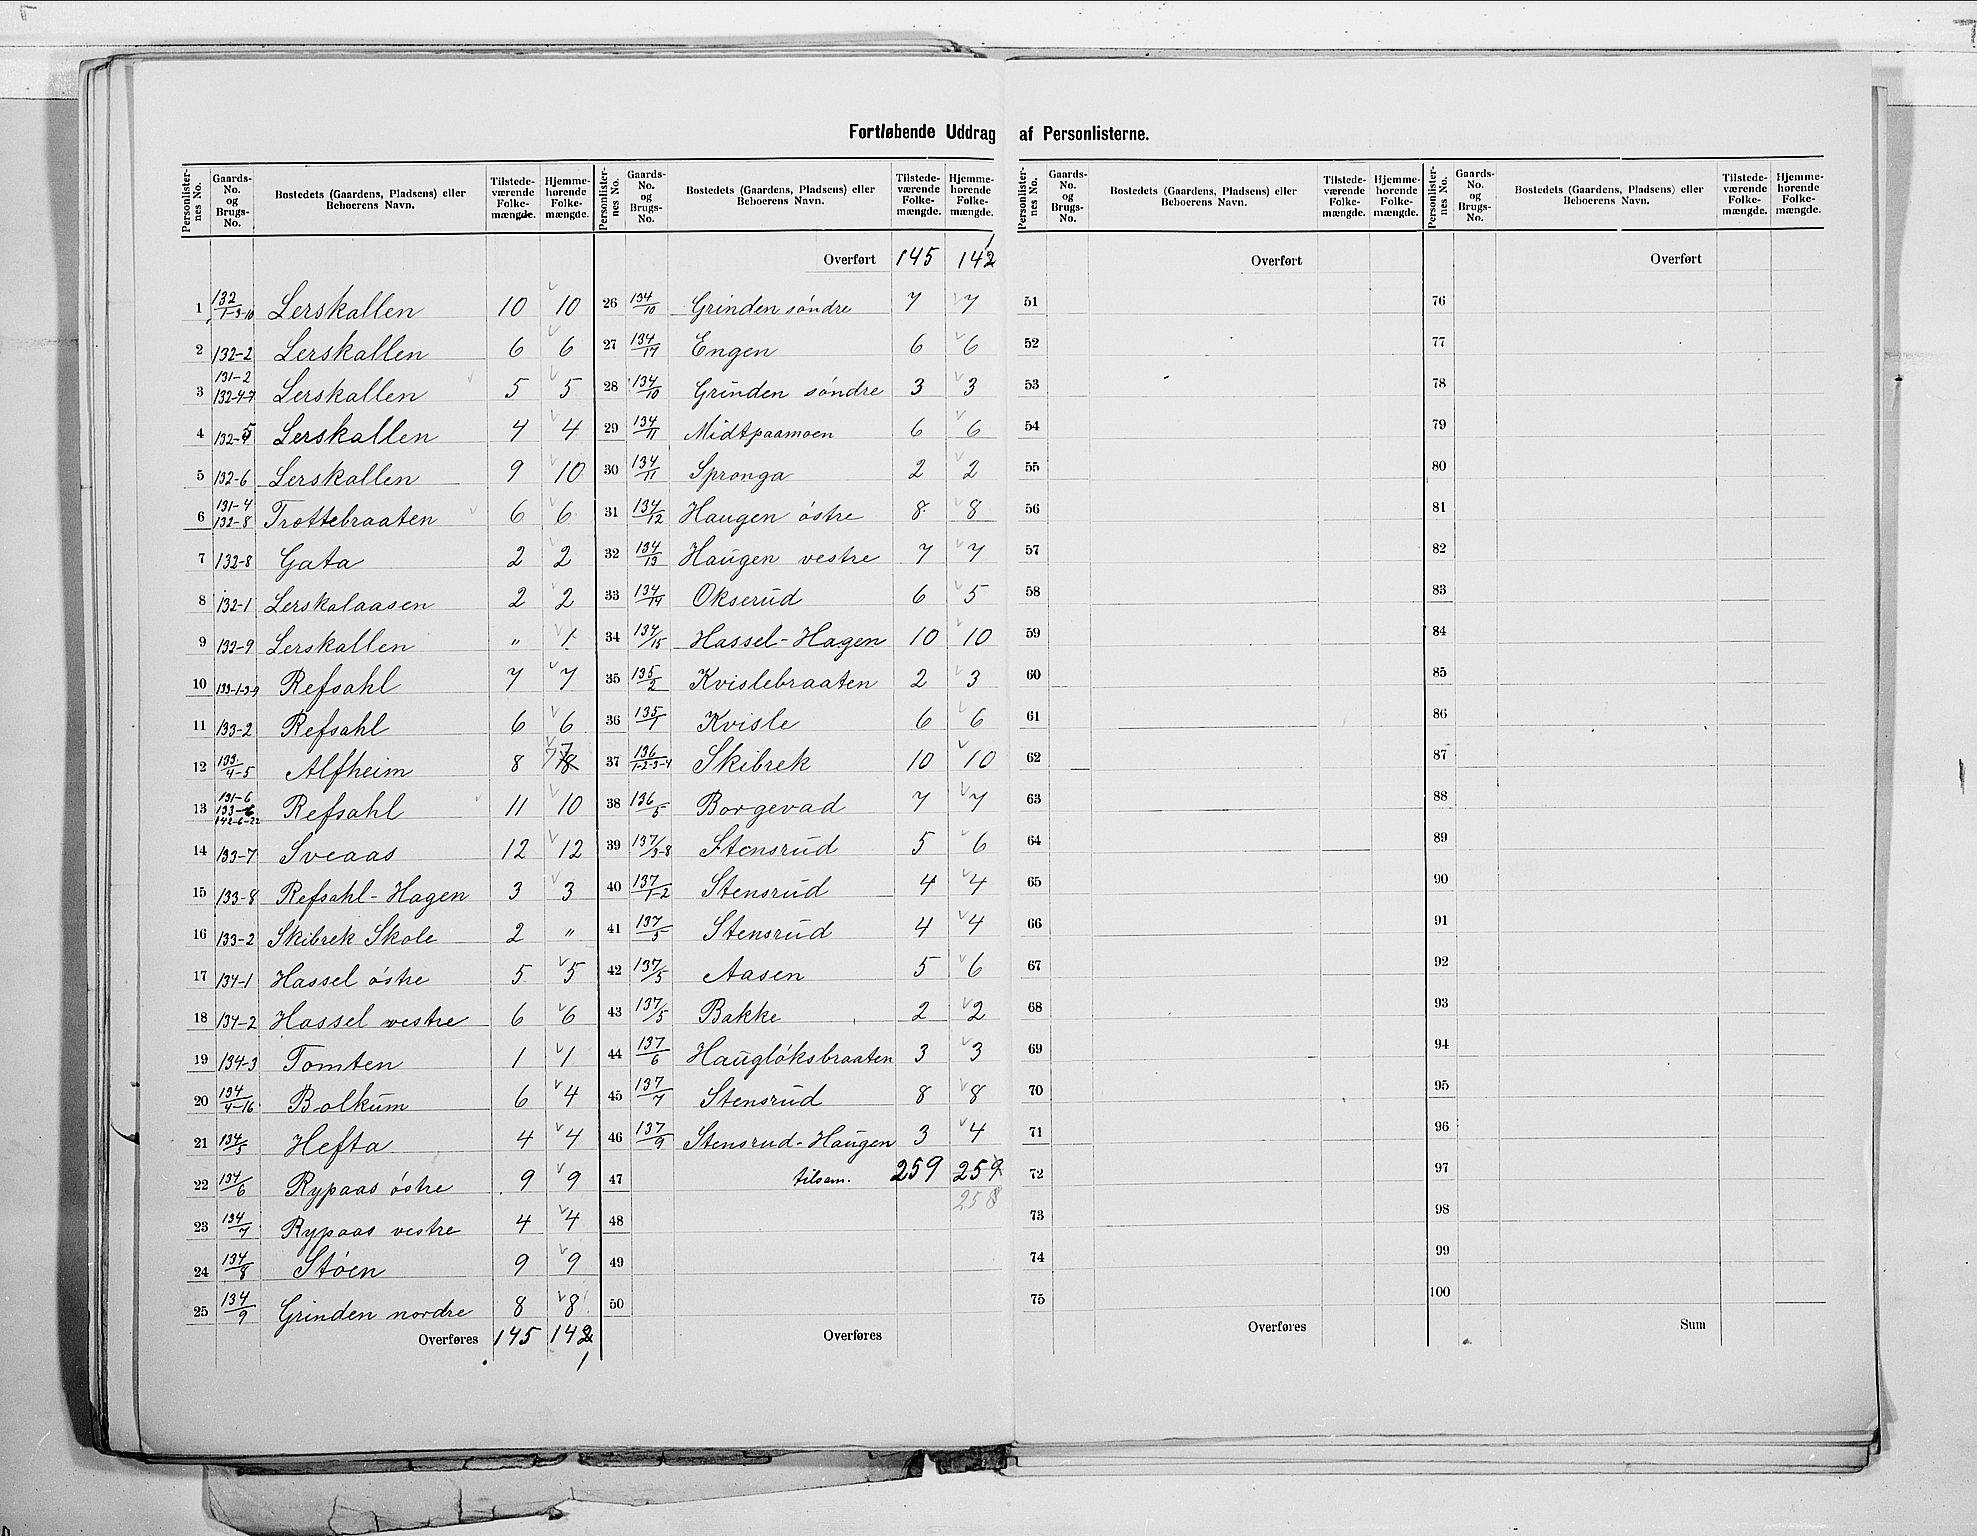 Fortløbende Uddrag af Personlisterne.
Personlister-nes No. | Gaards-No. og Brugs-No. | Bostedets (Gaardens, Pladsens) eller Beboerens Navn. | Tilstede-værende Folke-mængde. | Hjemme-hørende Folke-mængde.
1 132/1-3-10 Lerskallen 10 10
2 132-2 Lerskallen 6 6
3 131-2 132-4-7 Lerskallen 5 5
4 132-5 Lerskallen 4 4
5 132-6 Lerskallen 9 10
6 131-4 132-8 Trottebraaten 6 6
7 132-8 Gata 2 2
8 132-1 Lerskalaasen 2 2
9 132-9 Lerskallen " 1
10 133-1-3-9 Refsahl 7 7
11 133-2 Refsahl 6 6
12 133/4-5 Alfheim 8 7
13 131-6 133-6 142-6-22 Refsahl 11 10
14 133-7 Sveaas 12 12
15 133-8 Refsahl-Hagen 3 3
16 133-2 Skibrek Skole 2 "
17 134-1 Hassel östre 5 5
18 134-2 Hassel vestre 6 6
19 134-3 Tomten 1 1
20 134/4-16 Bolkum 6 4
21 134/5 Hefta 4 4
22 134/6 Rypaas östre 9 9
23 134/7 Rypaas vestre 4 4
24 134/8 Stöen 9 9
25 134/9 Grinden nordre 8 8
Overføres 145 142
1
Personlister-nes No. | Gaards-No. og Brugs-No. | Bostedets (Gaardens, Pladsens) eller Beboerens Navn. | Tilstede-værende Folke-mængde. | Hjemme-hørende Folke-mængde.
1
Overført 145 142
26 134/10 Grinden söndre 7 7
27 134/17 Engen 6 6
28 134/10 Grinden söndre 3 3
29 134/11 Midtpaamoen 6 6
30 134/11 Spronga 2 2
31 134/12 Haugen östre 8 8
32 134/13 Haugen vestre 7 7
33 134/14 Okserud 6 5
34 134/15 Hassel-Hagen 10 10
35 135/2 Kvislebraaten 2 3
36 135/1 Kvisle 6 6
37 136/1-2-3-4 Skibrek 10 10
38 136/5 Borgevad 7 7
39 137/3-8 Stensrud 5 6
40 137/1-2 Stensrud 4 4
41 137/5 Stensrud 4 4
42 137/5 Aasen 5 6
43 137/5 Bakke 2 2
44 137/6 Hauglöksbraaten 3 3
45 137/7 Stensrud 8 8
46 137/9 Stensrud-Haugen 3 4
47 tilsam. 259 259
48 258
49
50
Overføres
Personlister-nes No. | Gaards-No. og Brugs-No. | Bostedets (Gaardens, Pladsens) eller Beboerens Navn. | Tilstede-værende Folke-mængde. | Hjemme-hørende Folke-mængde.
Overført
51
52
53
54
55
56
57
58
59
60
61
62
63
64
65
66
67
68
69
70
71
72
73
74
75
Overføres
Personlister-nes No. | Gaards-No. og Brugs-No. | Bostedets (Gaardens, Pladsens) eller Beboerens Navn. | Tilstede-værende Folke-mængde. | Hjemme-hørende Folke-mængde.
Overført
76
77
78
79
80
81
82
83
84
85
86
87
88
89
90
91
92
93
94
95
96
97
98
99
100
Sum